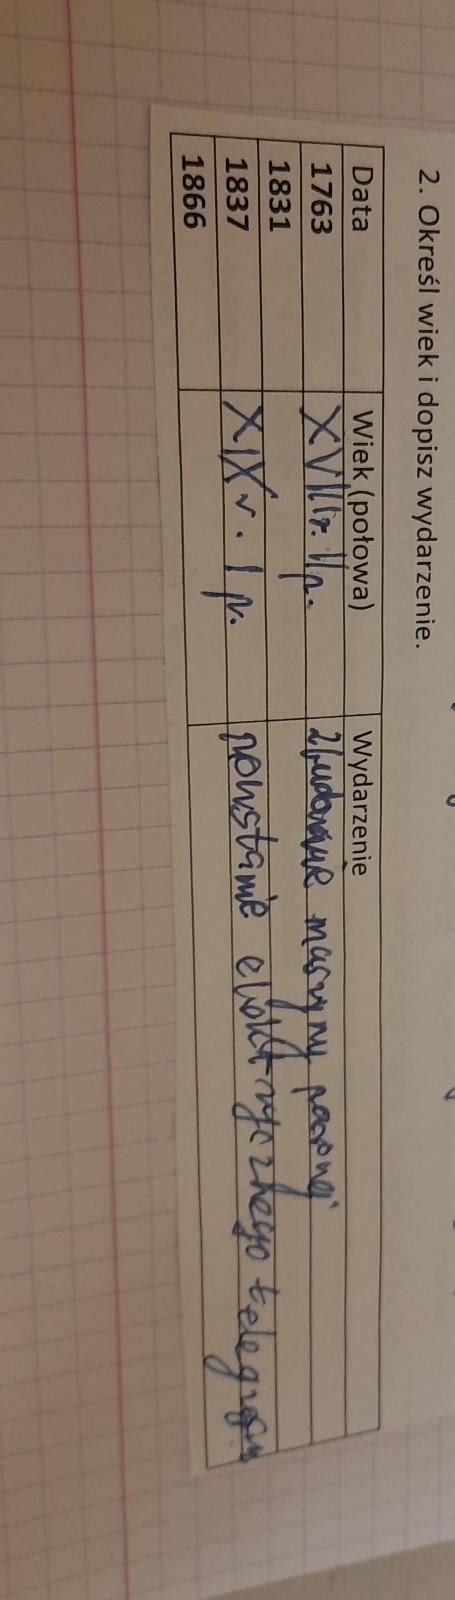 2. Określ wiek i dopisz wydarzenie.
Data Wiek (połowa) Wydarzenie
1763 XVIIIw. II p. zbudowanie maszyny parowej
1831
1837 XIX w. I p. powstanie elektrycznego telegrafu
1866